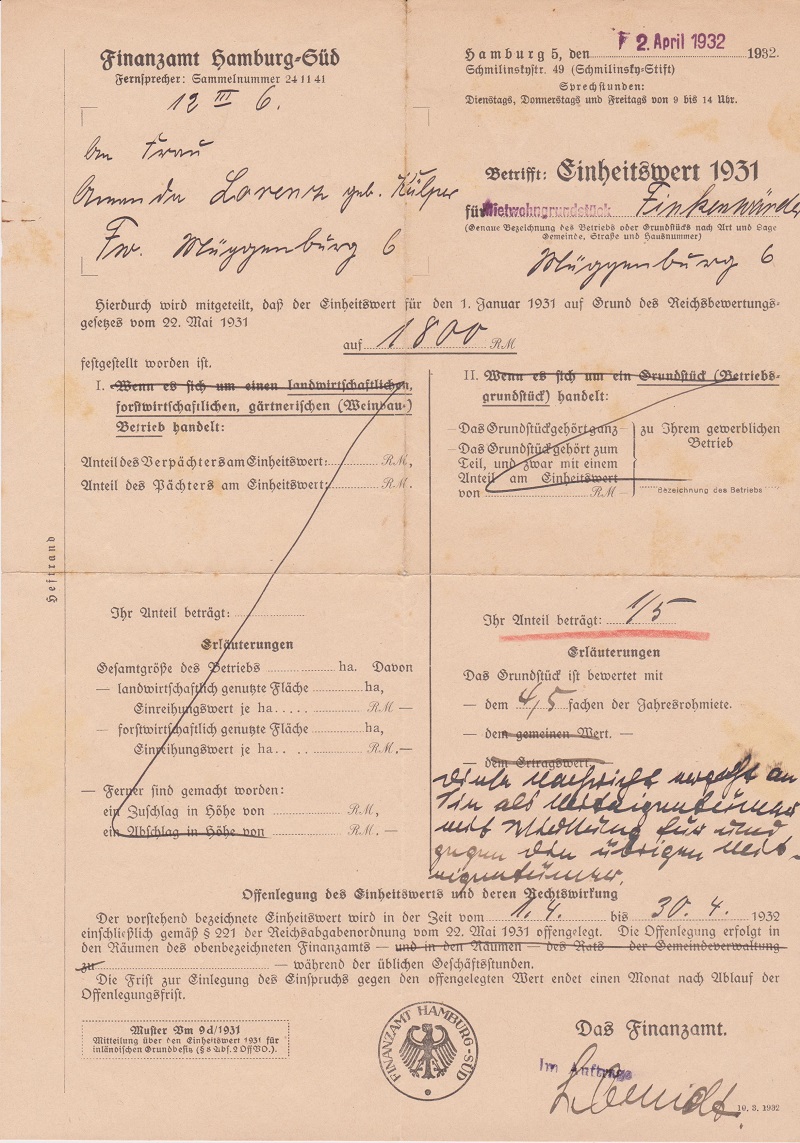 Finanzamt Hamburg-Süd
Fernsprecher: Sammelnummer 24 11 41
12 III 6.
Hamburg 5, den 2. April 1932 1932.
Schmilinskystr. 49 (Schmilinsky-Stift)
Sprechstunden:
Dienstags, Donnerstags und Freitags von 9 bis 14 Uhr.
An Frau
Lorenz geb. Külper
Fw. Müggenburg 6
Betrifft: Einheitswert 1931
für Mietwohngrundstück Finkenwärder
(Genaue Bezeichnung des Betriebs oder Grundstücks nach Art und Lage
Gemeinde, Straße und Hausnummer)
Müggenburg 6
Hierdurch wird mitgeteilt, daß der Einheitswert für den 1. Januar 1931 auf Grund des Reichsbewertungs-
gesetzes vom 22. Mai 1931
auf 1800 RM
festgestellt worden ist.
I. Wenn es sich um einen landwirtschaftlichen,
forstwirtschaftlichen, gärtnerischen (Weinbau-)
Betrieb handelt:
Anteil des Verpächters am Einheitswert: RM,
Anteil des Pächters am Einheitswert: RM.
Ihr Anteil beträgt:
Erläuterungen
Gesamtgröße des Betriebs ha. Davon
— landwirtschaftlich genutzte Fläche ha,
Einreihungswert je ha RM —
— forstwirtschaftlich genutzte Fläche ha,
Einreihungswert je ha RM.—
— Ferner sind gemacht worden:
ein Zuschlag in Höhe von RM,
ein Abschlag in Höhe von RM. —
II. Wenn es sich um ein Grundstück (Betriebs-
grundstück) handelt:
— Das Grundstück gehört ganz
— Das Grundstück gehört zum
Teil, und zwar mit einem
Anteil am Einheitswert
von RM —
zu Ihrem gewerblichen
Betrieb
Bezeichnung des Betriebs
Ihr Anteil beträgt: 1/5
Erläuterungen
Das Grundstück ist bewertet mit
— dem 4,5 fachen der Jahresrohmiete.
— dem gemeinen Wert. —
— dem Ertragswert. —
Diese Nachricht ergeht an
Sie als Miteigentümer
mit Wirkung für und
gegen die übrigen Mit-
eigentümer.
Offenlegung des Einheitswerts und deren Rechtswirkung
Der vorstehend bezeichnete Einheitswert wird in der Zeit vom 1. 4. bis 30. 4. 1932
einschließlich gemäß § 221 der Reichsabgabenordnung vom 22. Mai 1931 offengelegt. Die Offenlegung erfolgt in
den Räumen des obenbezeichneten Finanzamts — und in den Räumen — des Rats — der Gemeindeverwaltung
zu — während der üblichen Geschäftsstunden.
Die Frist zur Einlegung des Einspruchs gegen den offengelegten Wert endet einen Monat nach Ablauf der
Offenlegungsfrist.
Muster Vm 9d/1931
Mitteilung über den Einheitswert 1931 für
inländischen Grundbesitz (§ 8 Abs. 2 OffVO.).
FINANZAMT HAMBURG-SÜD
Das Finanzamt.
Im Auftrage
10. 3. 1932
Heftrand